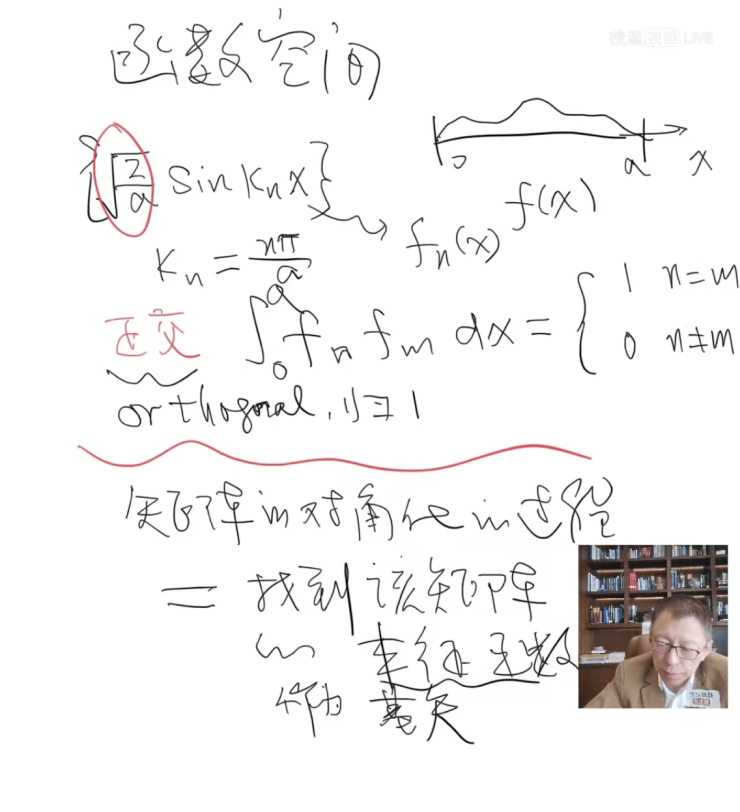 搜狐视频 LIVE
函数空间
{√(2/a) sin Kₙx} → fₙ(x)
0 a x
f(x)
Kₙ = nπ/a
正交 ∫₀ᵃ fₙ fₘ dx = { 1 n=m
0 n≠m
orthogonal, 归1
矩阵的对角化的过程
= 找到该矩阵
的 本征函数
作为 基矢